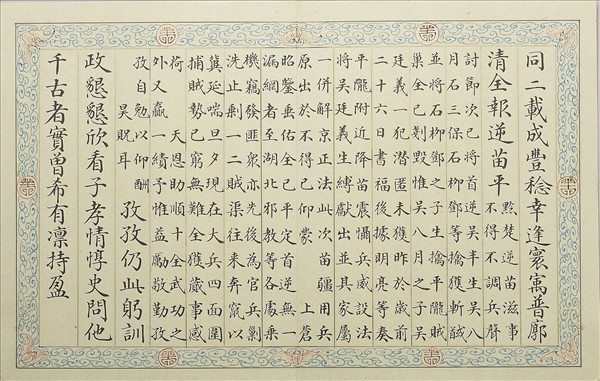 同二載成豐稔幸逢寰寓普廓
清全報逆苗平
黔楚逆苗滋事
不得不調兵聲
討節次已將首逆吳半生吳八
月石三保石柳鄧等擒獲斬馘
並將石柳鄧之子生擒平隴賊
巢全已剗毀惟吳八月之子吳
廷義一犯潛匿未獲昨於歲前
二十六日書福後據明亮等奏
平隴附近降苗震懾兵威設法
將吳廷義生縛獻出並其家屬
一併解京正法此次苗疆用兵
原出於不得已仰蒙 上蒼
昭鑒垂佑全已平定首逆無一
漏網者至湖北邪教等各處乘
機竊發匪衆亦先後為官兵剿
洗止剩一二賊渠往來奔竄以
冀延喘旦夕現在大兵四面圍
捕賊勢已窮無難全獲蕆事感
荷 天恩助順十全武功之
外又贏一績予惟益勵敬勤孜
孜自勉以仰酬
昊貺耳
孜孜仍此躬訓
政懇懇欣看子孝情惇史問他
千古者實曾希有凛持盈